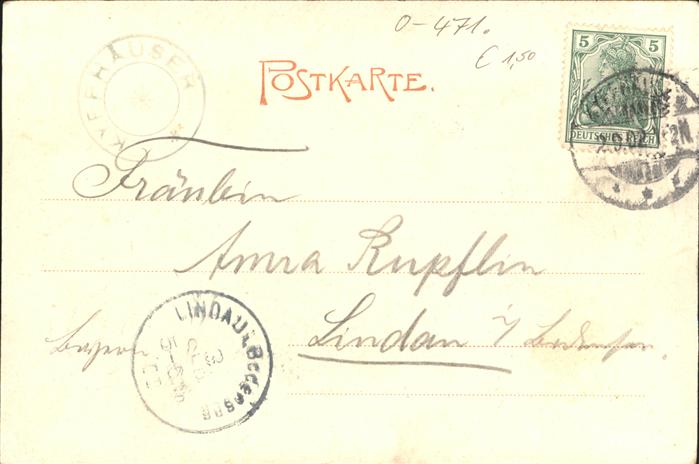 O-471.
€ 1,50
KYFFHÄUSER
POSTKARTE.
5 5
DEUTSCHES REICH
Fräulein
Anna Rupflin
Lindau i/ Bodensee.
Bayern
LINDAU i. Bodensee